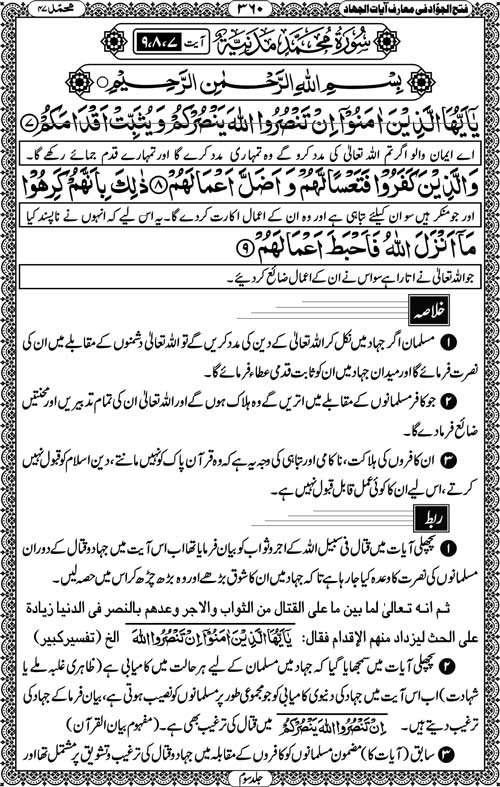 فتح الجوّاد فی معارف آیات الجہاد ۳۶۰ محمّد ۴۷
سُورَةُ مُحَمَّدٍ مَدَنِيَّةٌ آیت ۷، ۸، ۹
بِسْمِ اللهِ الرَّحْمٰنِ الرَّحِيْمِ
يٰٓاَيُّهَا الَّذِيْنَ اٰمَنُوْٓا اِنْ تَنْصُرُوا اللهَ يَنْصُرْكُمْ وَيُثَبِّتْ اَقْدَامَكُمْ ۷
اے ایمان والو اگر تم اللہ تعالیٰ کی مدد کرو گے وہ تمہاری مدد کرے گا اور تمہارے قدم جمائے رکھے گا۔
وَالَّذِيْنَ كَفَرُوْا فَتَعْسًا لَّهُمْ وَاَضَلَّ اَعْمَالَهُمْ ۸ ذٰلِكَ بِاَنَّهُمْ كَرِهُوْا
اور جو منکر ہیں سو ان کیلئے تباہی ہے اور وہ ان کے اعمال اکارت کر دے گا۔ یہ اس لیے کہ انہوں نے ناپسند کیا
مَآ اَنْزَلَ اللهُ فَاَحْبَطَ اَعْمَالَهُمْ ۹
جو اللہ تعالیٰ نے اتارا ہے سو اس نے ان کے اعمال ضائع کر دیئے۔
خلاصہ
۱ مسلمان اگر جہاد میں نکل کر اللہ تعالیٰ کے دین کی مدد کریں گے تو اللہ تعالیٰ دشمنوں کے مقابلے میں ان کی
نصرت فرمائے گا اور میدان جہاد میں ان کو ثابت قدمی عطاء فرمائے گا۔
۲ جو کافر مسلمانوں کے مقابلے میں اتریں گے وہ ہلاک ہوں گے اور اللہ تعالیٰ ان کی تمام تدبیریں اور محنتیں
ضائع فرما دے گا۔
۳ ان کافروں کی ہلاکت، ناکامی اور تباہی کی وجہ یہ ہے کہ وہ قرآن پاک کو نہیں مانتے، دین اسلام کو قبول نہیں
کرتے، اس لیے ان کا کوئی عمل قابل قبول نہیں ہے۔
ربط
۱ پچھلی آیات میں قتال فی سبیل اللہ کے اجر و ثواب کو بیان فرمایا تھا اب اس آیت میں جہاد و قتال کے دوران
مسلمانوں کی نصرت کا وعدہ کیا جا رہا ہے تاکہ جہاد میں ان کا شوق بڑھے اور وہ بڑھ چڑھ کر اس میں حصہ لیں۔
ثم انہ تعالیٰ لما بین ما علی القتال من الثواب والاجر وعدهم بالنصر فی الدنیا زیادة
علی الحث لیزداد منهم الإقدام فقال: يٰٓاَيُّهَا الَّذِيْنَ اٰمَنُوْٓا اِنْ تَنْصُرُوا اللهَ الخ (تفسیر کبیر)
۲ پچھلی آیات میں سمجھایا گیا کہ جہاد میں مسلمان کے لیے ہر حالت میں کامیابی ہے (ظاہری غلبہ ملے یا
شہادت) اب اس آیت میں جہاد کی دنیوی کامیابی کو جو مجموعی طور پر مسلمانوں کو نصیب ہوتی ہے، بیان فرما کے جہاد کی
ترغیب دیتے ہیں۔ اِنْ تَنْصُرُوا اللهَ يَنْصُرْكُمْ میں قتال کی ترغیب بھی ہے۔ (مفہوم بیان القرآن)
۳ سابق (آیات کا) مضمون مسلمانوں کو کافروں کے مقابلہ میں جہاد و قتال کی ترغیب و تشویق پر مشتمل تھا اور
جلد سوم